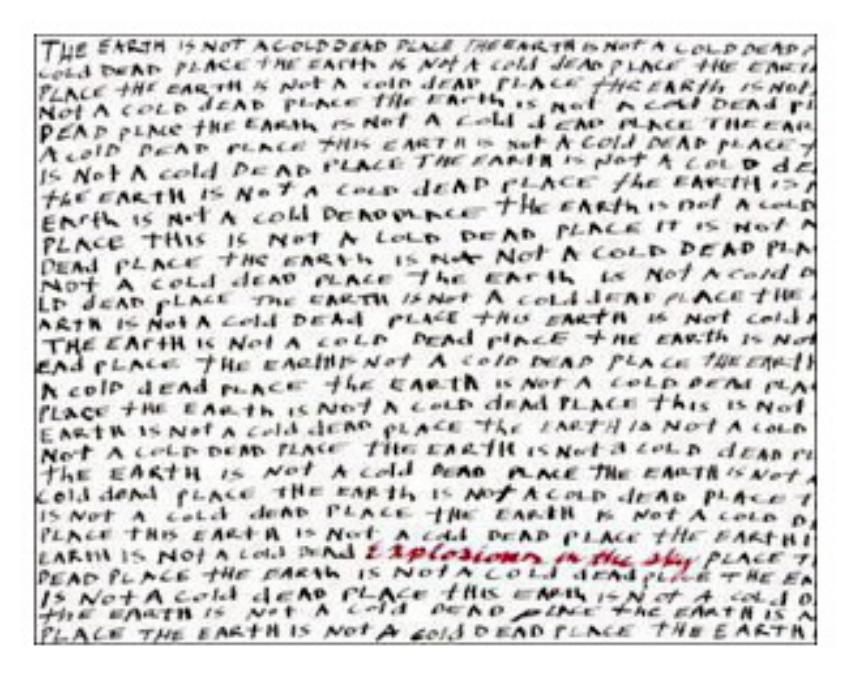 THE EARTH IS NOT A COLD DEAD PLACE THE EARTH IS NOT A COLD DEAD P
COLD DEAD PLACE THE EARTH IS NOT A COLD DEAD PLACE THE EARTH
PLACE THE EARTH IS NOT A COLD DEAD PLACE THE EARTH IS NOT
NOT A COLD DEAD PLACE THE EARTH IS NOT A COLD DEAD PL
DEAD PLACE THE EARTH IS NOT A COLD DEAD PLACE THE EAR
A COLD DEAD PLACE THIS EARTH IS NOT A COLD DEAD PLACE T
IS NOT A COLD DEAD PLACE THE EARTH IS NOT A COLD DE
THE EARTH IS NOT A COLD DEAD PLACE THE EARTH IS
EARTH IS NOT A COLD DEAD PLACE THE EARTH IS NOT A COLD
PLACE THIS IS NOT A COLD DEAD PLACE IT IS NOT A
DEAD PLACE THE EARTH IS NOT A COLD DEAD PLA
NOT A COLD DEAD PLACE THE EARTH IS NOT A COLD D
LD DEAD PLACE THE EARTH IS NOT A COLD DEAD PLACE THE
ARTH IS NOT A COLD DEAD PLACE THIS EARTH IS NOT COLD
THE EARTH IS NOT A COLD DEAD PLACE THE EARTH IS NOT
EAD PLACE THE EARTH IS NOT A COLD DEAD PLACE THE EARTH
A COLD DEAD PLACE THE EARTH IS NOT A COLD DEAD PLA
PLACE THE EARTH IS NOT A COLD DEAD PLACE THIS IS NOT
EARTH IS NOT A COLD DEAD PLACE THE EARTH IS NOT A COLD
NOT A COLD DEAD PLACE THE EARTH IS NOT A COLD DEAD PL
THE EARTH IS NOT A COLD DEAD PLACE THE EARTH IS NOT A
COLD DEAD PLACE THE EARTH IS NOT A COLD DEAD PLACE T
IS NOT A COLD DEAD PLACE THE EARTH IS NOT A COLD D
PLACE THIS EARTH IS NOT A COLD DEAD PLACE THE EARTH I
EARTH IS NOT A COLD DEAD Explosions in the sky PLACE T
DEAD PLACE THE EARTH IS NOT A COLD DEAD PLACE THE EA
IS NOT A COLD DEAD PLACE THIS EARTH IS NOT A COLD D
THE EARTH IS NOT A COLD DEAD PLACE THE EARTH IS N
PLACE THE EARTH IS NOT A COLD DEAD PLACE THE EARTH